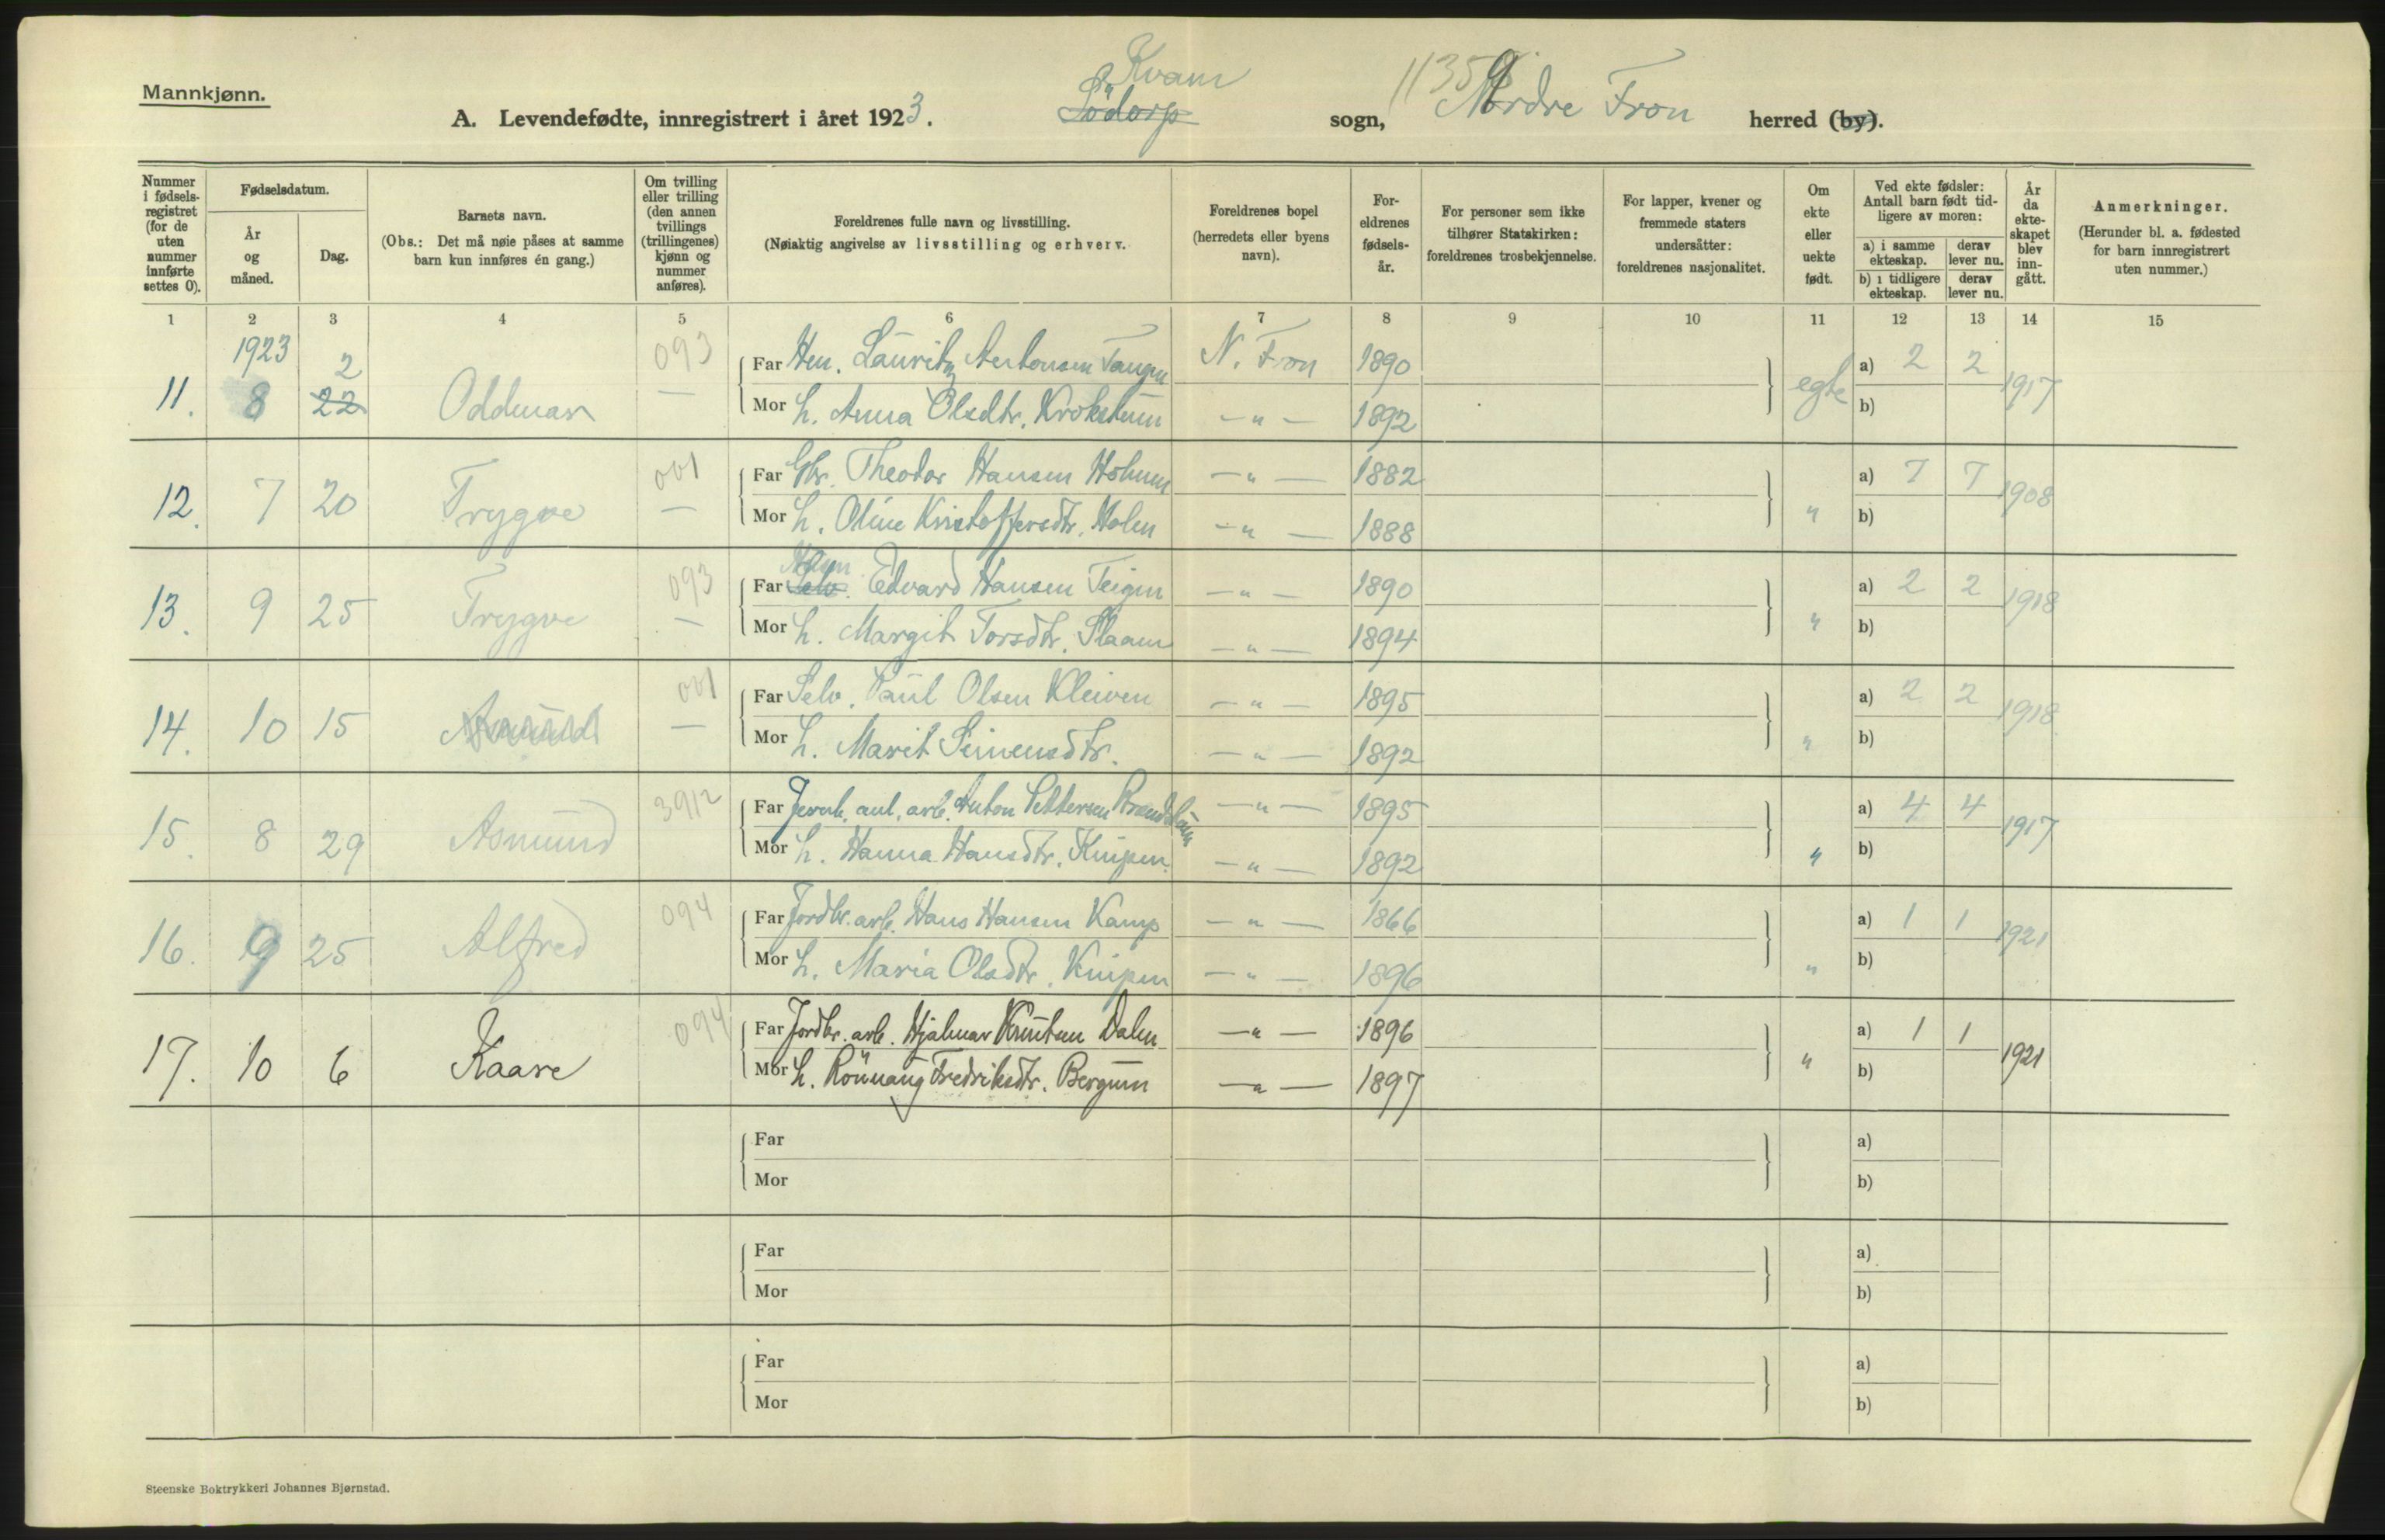 Mannkjønn.
Kvam
A. Levendefødte, innregistrert i året 1923. Södorp sogn, 1135 Nordre Fron herred (by).
Nummer i fødselsregistret (for de uten nummer innførte settes 0).
Fødselsdatum.
År og måned.
Dag.
Barnets navn.
(Obs.: Det må nøie påses at samme barn kun innføres én gang.)
Om tvilling eller trilling (den annen tvillings (trillingenes) kjønn og nummer anføres).
Foreldrenes fulle navn og livsstilling.
(Nøiaktig angivelse av livsstilling og erhverv.
Foreldrenes bopel (herredets eller byens navn).
Foreldrenes fødselsår.
For personer som ikke tilhører Statskirken: foreldrenes trosbekjennelse.
For lapper, kvener og fremmede staters undersåtter: foreldrenes nasjonalitet.
Om ekte eller uekte født.
Ved ekte fødsler: Antall barn født tidligere av moren:
a) i samme ekteskap. derav lever nu.
b) i tidligere ekteskap. derav lever nu.
År da ekteskapet blev inngått.
Anmerkninger.
(Herunder bl. a. fødested for barn innregistrert uten nummer.)
1 2 3 4 5 6 7 8 9 10 11 12 13 14 15
1923 2 093 Far Lauritz Antonsen Tangen N. Fron 1890 a) 2 2
11. 8 22 Oddmar — Mor h. Anna Olsdtr. Krokstuen — " — 1892 egte b) 1917
001 Far Gbr. Theodor Hansen — " — 1882 a) 7 7
12. 7 20 Trygve — Mor h. Oline Kristoffersdtr. Holen — " — 1888 " b) 1908
093 Far Selv. Edvard Hansen Teigen — " — 1890 a) 2 2
13. 9 25 Trygve — Mor h. Margit Torsdtr. — " — 1894 " b) 1918
001 Far Selv. Paul Olsen Kleiven — " — 1895 a) 2 2
14. 10 15 — Mor h. Marit — " — 1892 " b) 1918
3912 Far Jernb. anl. arb. Anton Pettersen — " — 1895 a) 4 4
15. 8 29 Asmund Mor h. Hanna Hansdtr. Knipen — " — 1892 " b) 1917
094 Far Jordbr. arb. Hans Hansen Kamp — " — 1866 a) 1 1
16. 9 25 Alfred Mor h. Maria Olsdtr. Knipen — " — 1896 " b) 1921
094 Far Jordbr. arb. Hjalmar Knutsen Dalen — " — 1896 a) 1 1
17. 10 6 Kaare Mor h. Rönnaug Fredriksdtr. Bergum — " — 1897 " b) 1921
Far a)
Mor b)
Far a)
Mor b)
Far a)
Mor b)
Steenske Boktrykkeri Johannes Bjørnstad.